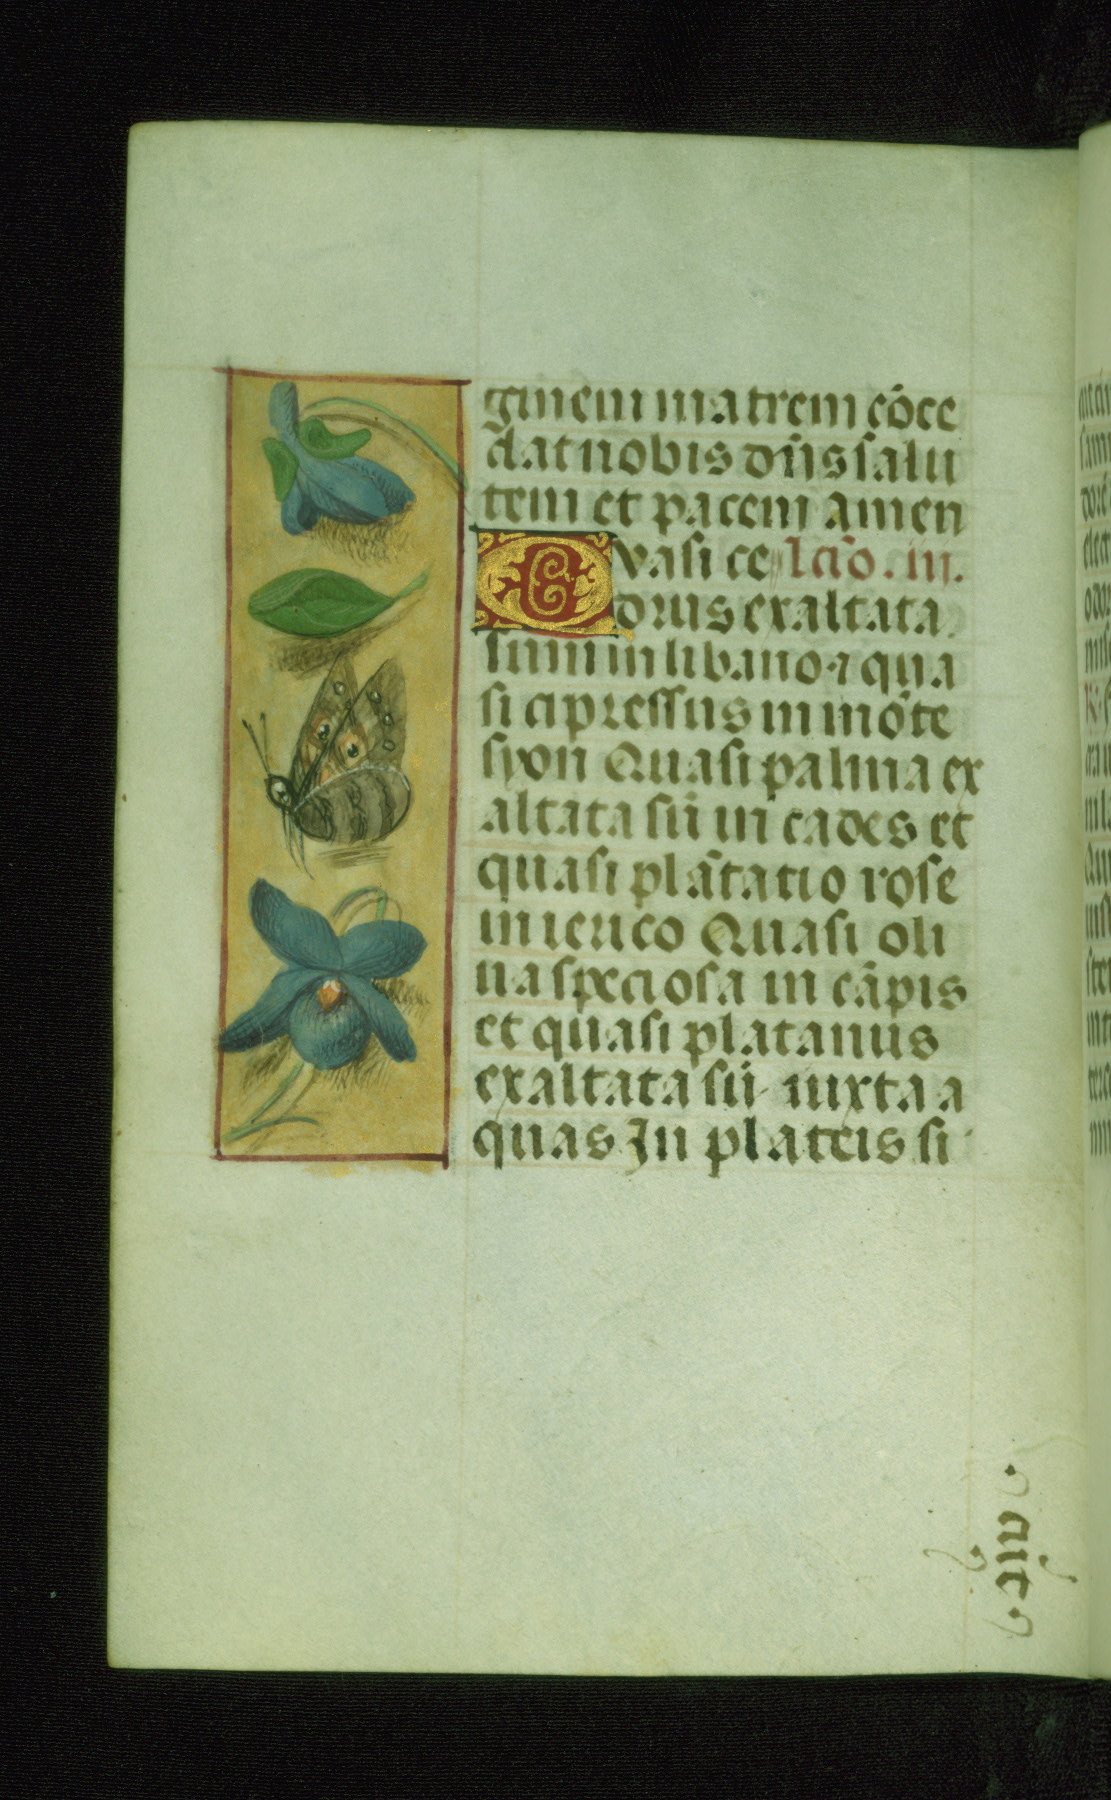 ginem matrem cōce
dat nobis dn̄s salu
tem et pacem amen
Qvasi ce lctīo. iij.
drus exaltata
sum in libano ⁊ qua
si cipressus in mōte
syon Quasi palma ex
altata sū in cades et
quasi plātatio rose
in ierico Quasi oli
ua speciosa in cāpis
et quasi platanus
exaltata sū iuxta a
quas In plateis si